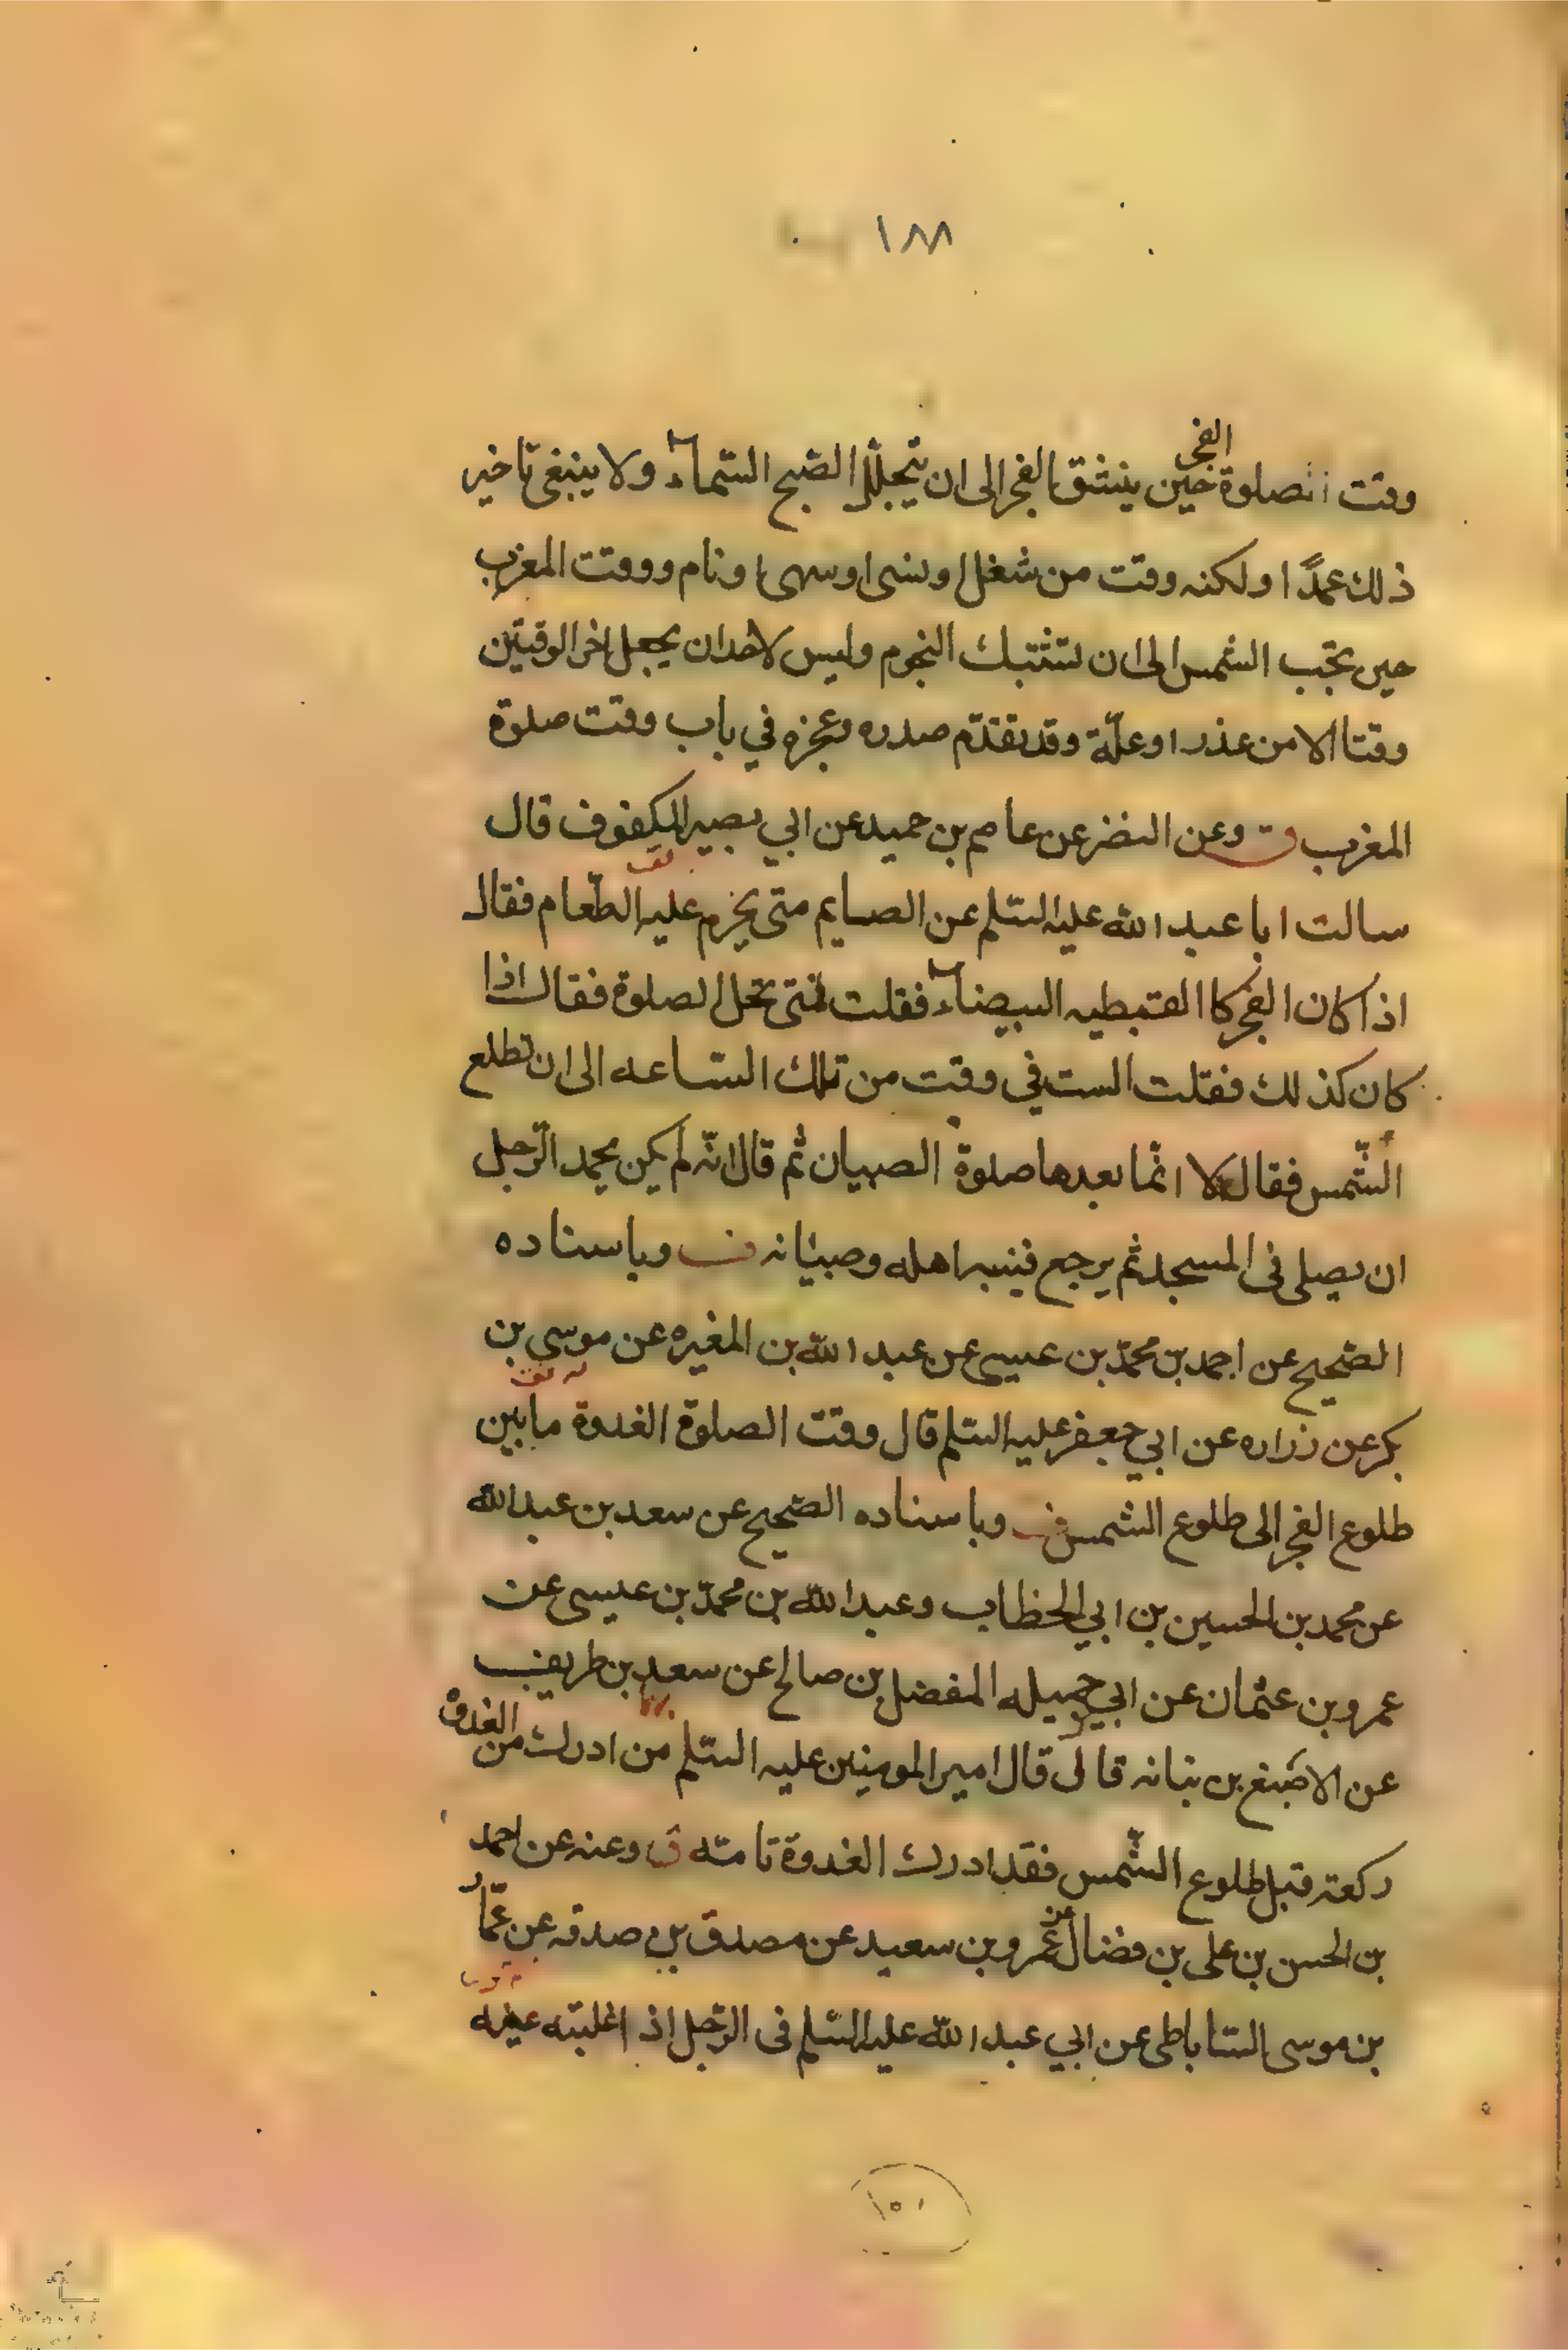 ١٨٨
الفجر
وقت الصلوة حين ينشق الفجر الى ان يتجلل الصبح السماء ولا ينبغى تاخير
ذلك عمدًا ولكنه وقت من شغل او نسى او سهى او نام ووقت المغرب
حين تجب الشمس الى ان تشتبك النجوم وليس لاحد ان يجعل اخر الوقتين
وقتا الا من عذر او علّة وقد تقدّم صدره وعجزه في باب وقت صلوة
المغرب ق وعن النضر عن عاصم بن حميد عن ابي بصير المكفوف قال
سالت ابا عبد الله عليه السّلم عن الصايم متى يحرم عليه الطّعام فقال
اذا كان الفجر كا القبطيه البيضاء فقلت فمتى تحل الصلوة فقال اذا
كان كذلك فقلت الست في وقت من تلك السّاعه الى ان تطلع
الشّمس فقال لا انّما بعدها صلوة الصبيان ثم قال انّه لم يكن يحمد الرّجل
ان يصلى فى المسجد ثم يرجع فينبه اهله وصبيانه ف وباسناده
الصّحيح عن احمد بن محمّد بن عيسى عن عبد الله بن المغيره عن موسى بن
بكر عن زراره عن ابي جعفر عليه السّلم قال وقت الصلوة الغدوة ما بين
طلوع الفجر الى طلوع الشمس ف وباسناده الصّحيح عن سعد بن عبد الله
عن محمد بن الحسين بن ابي الخطاب وعبد الله بن محمّد بن عيسى عن
عمرو بن عثمان عن ابي جميله المفضل بن صالح عن سعد بن طريف
عن الاصبغ بن نباته قال قال امير المومنين عليه السّلم من ادرك من الغدوة
ركعة قبل طلوع الشّمس فقد ادرك الغدوة تامته ق وعنه عن احمد
بن الحسن بن على بن فضال عن عمرو بن سعيد عن مصدق بن صدقه عن عمّار
بن موسى السّاباطى عن ابي عبد الله عليه السّلم فى الرّجل اذ اغلبته عينه
١٥١